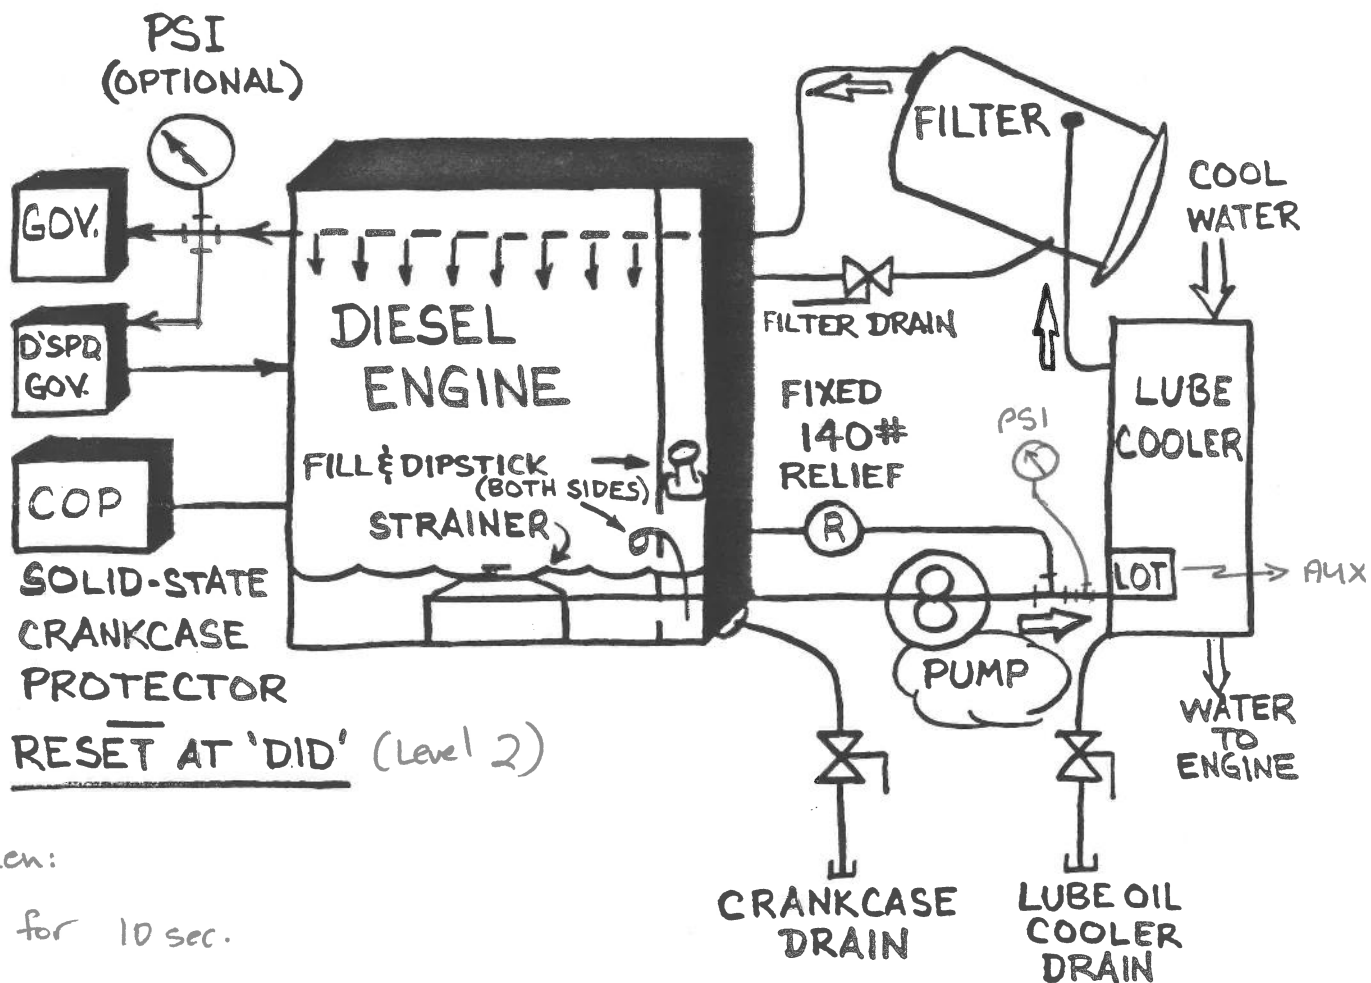 PSI
(OPTIONAL)
GOV.
D'SPD.
GOV.
COP
SOLID-STATE
CRANKCASE
PROTECTOR
RESET AT 'DID' (Level 2)
for 10 sec.
DIESEL
ENGINE
FILL & DIPSTICK
(BOTH SIDES)
STRAINER
FILTER
FILTER DRAIN
FIXED
140#
RELIEF
R
PUMP
PSI
COOL
WATER
LUBE
COOLER
LOT
AUX
WATER
TO
ENGINE
CRANKCASE
DRAIN
LUBE OIL
COOLER
DRAIN